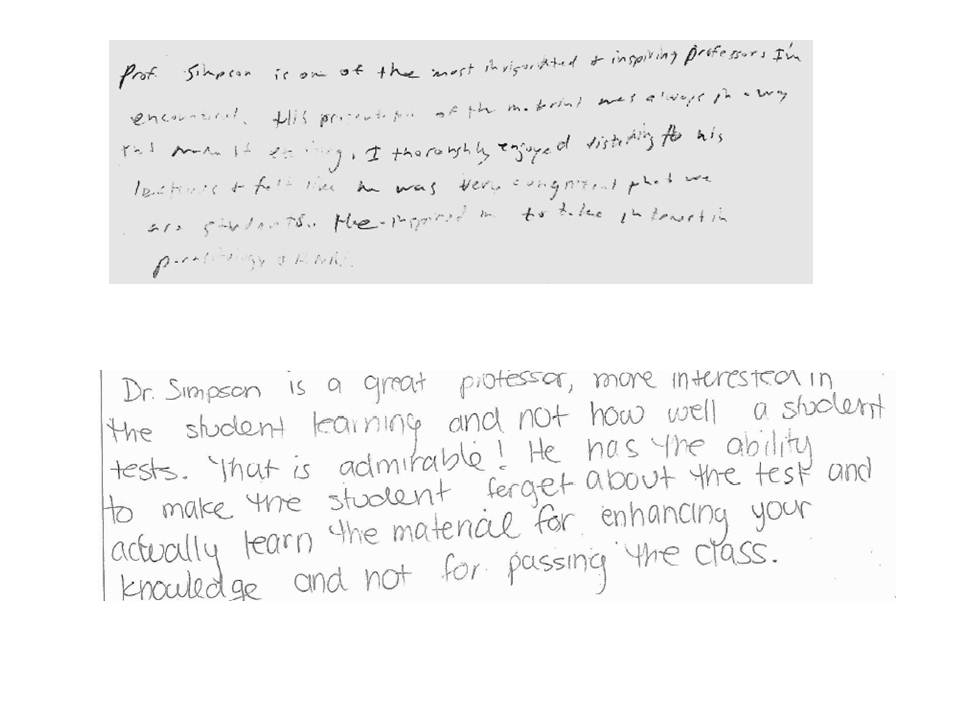 Prof. Simpson is one of the most invigorated & inspiring professors I'm
encountered. His presentation of the material was always in a way
that made it exciting. I thoroughly enjoyed listening to his
lectures & felt like he was very
students. He inspired me to take interest in
Dr. Simpson is a great professor, more interested in
the student learning and not how well a student
tests. That is admirable! He has the ability
to make the student forget about the test and
actually learn the material for enhancing your
knowledge and not for passing the class.